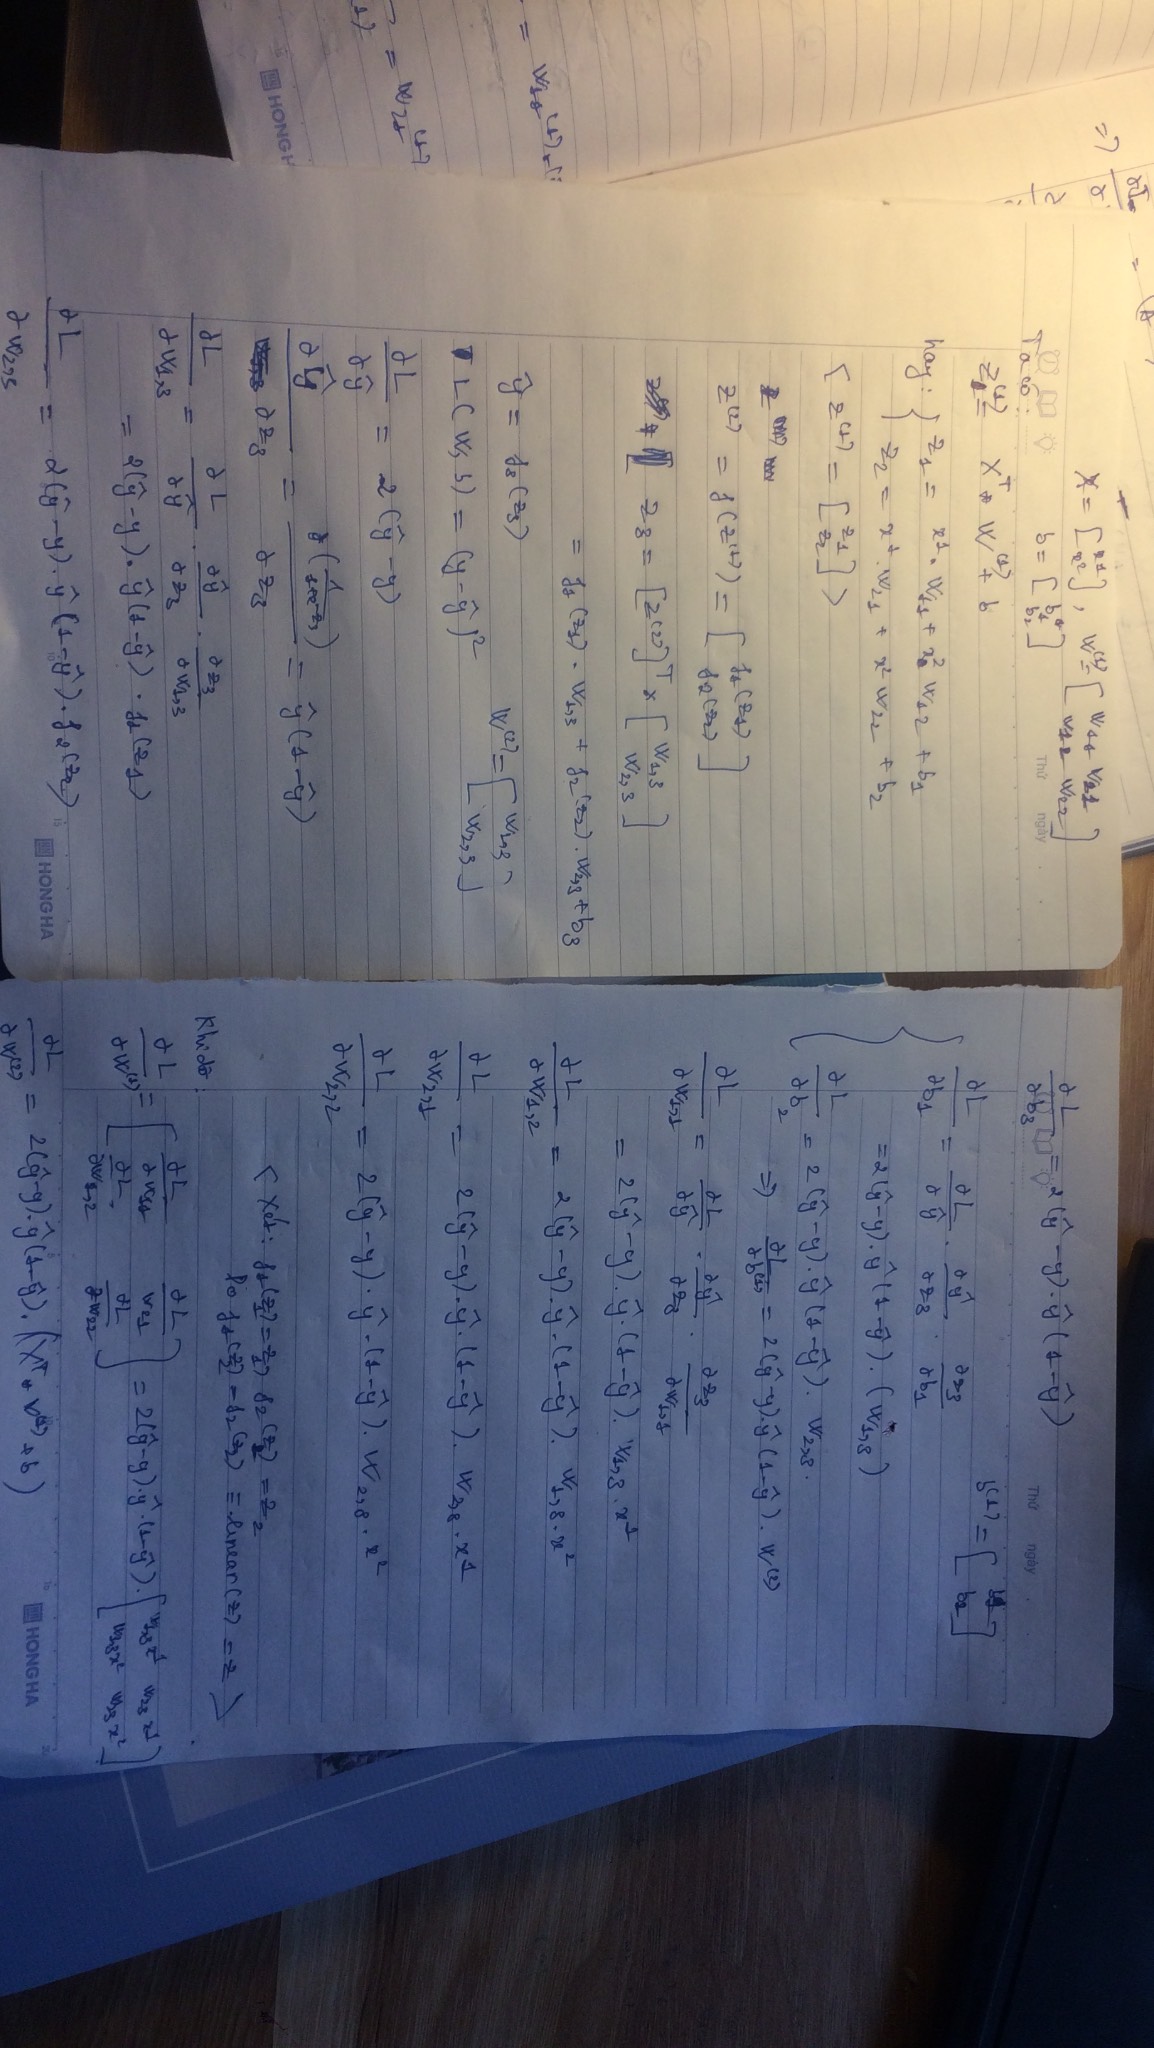 X = [x¹ x²], W⁽¹⁾ = [w₁₁ w₂₁ w₁₂ w₂₂]
Thứ ngày
Ta có: b = [b₁ b₂]
Z⁽¹⁾ = Xᵀ * W⁽¹⁾ + b
hay: { z₁ = x¹. w₁₁ + x² w₁₂ + b₁
z₂ = x¹. w₂₁ + x² w₂₂ + b₂
< z⁽¹⁾ = [z₁ z₂] >
z⁽²⁾ = f(z⁽¹⁾) = [f₁(z₁) f₂(z₂)]
z₃ = [z⁽²⁾]ᵀ × [w₁,₃ w₂,₃]
= f₁(z₁). w₁,₃ + f₂(z₂). w₂,₃ + b₃
ŷ = f₃(z₃)
W⁽²⁾ = [w₁,₃ w₂,₃]
L(w, b) = (y - ŷ)²
∂L/∂ŷ = 2(ŷ - y)
∂ŷ/∂z₃ = ∂(1/1+e⁻ᶻ³)/∂z₃ = ŷ(1 - ŷ)
∂L/∂w₁,₃ = ∂L/∂ŷ . ∂ŷ/∂z₃ . ∂z₃/∂w₁,₃
= 2(ŷ - y). ŷ(1 - ŷ). f₁(z₁)
∂L/∂w₂,₃ = 2(ŷ - y). ŷ(1 - ŷ). f₂(z₂)
HONGHA
Thứ ngày
∂L/∂b₃ = 2(ŷ - y). ŷ(1 - ŷ)
b⁽¹⁾ = [b₁ b₂]
{ ∂L/∂b₁ = ∂L/∂ŷ . ∂ŷ/∂z₃ . ∂z₃/∂b₁
= 2(ŷ - y). ŷ(1 - ŷ). (w₁,₃)
∂L/∂b₂ = 2(ŷ - y). ŷ(1 - ŷ). w₂,₃.
=> ∂L/∂b⁽¹⁾ = 2(ŷ - y). ŷ(1 - ŷ). W⁽²⁾
∂L/∂w₁,₁ = ∂L/∂ŷ . ∂ŷ/∂z₃ . ∂z₃/∂w₁,₁
= 2(ŷ - y). ŷ. (1 - ŷ). w₁,₃. x¹
∂L/∂w₁,₂ = 2(ŷ - y). ŷ. (1 - ŷ). w₁,₃. x²
∂L/∂w₂,₁ = 2(ŷ - y). ŷ. (1 - ŷ). w₂,₃. x¹
∂L/∂w₂,₂ = 2(ŷ - y). ŷ. (1 - ŷ). w₂,₃. x²
< Xét: f₁(z₁) = z₁, f₂(z₂) = z₂
Do f₁(z₁) = f₂(z₂) = linear(z) = z >
Khi đó:
∂L/∂W⁽¹⁾ = [∂L/∂w₁₁ ∂L/w₂₁ ∂L/∂w₁,₂ ∂L/∂w₂₂] = 2(ŷ - y). ŷ. (1 - ŷ). [w₁,₃x¹ w₂,₃x¹ w₁,₃x² w₂,₃x²]
∂L/∂W⁽²⁾ = 2(ŷ - y). ŷ(1 - ŷ). (Xᵀ * W⁽¹⁾ + b)
HONGHA